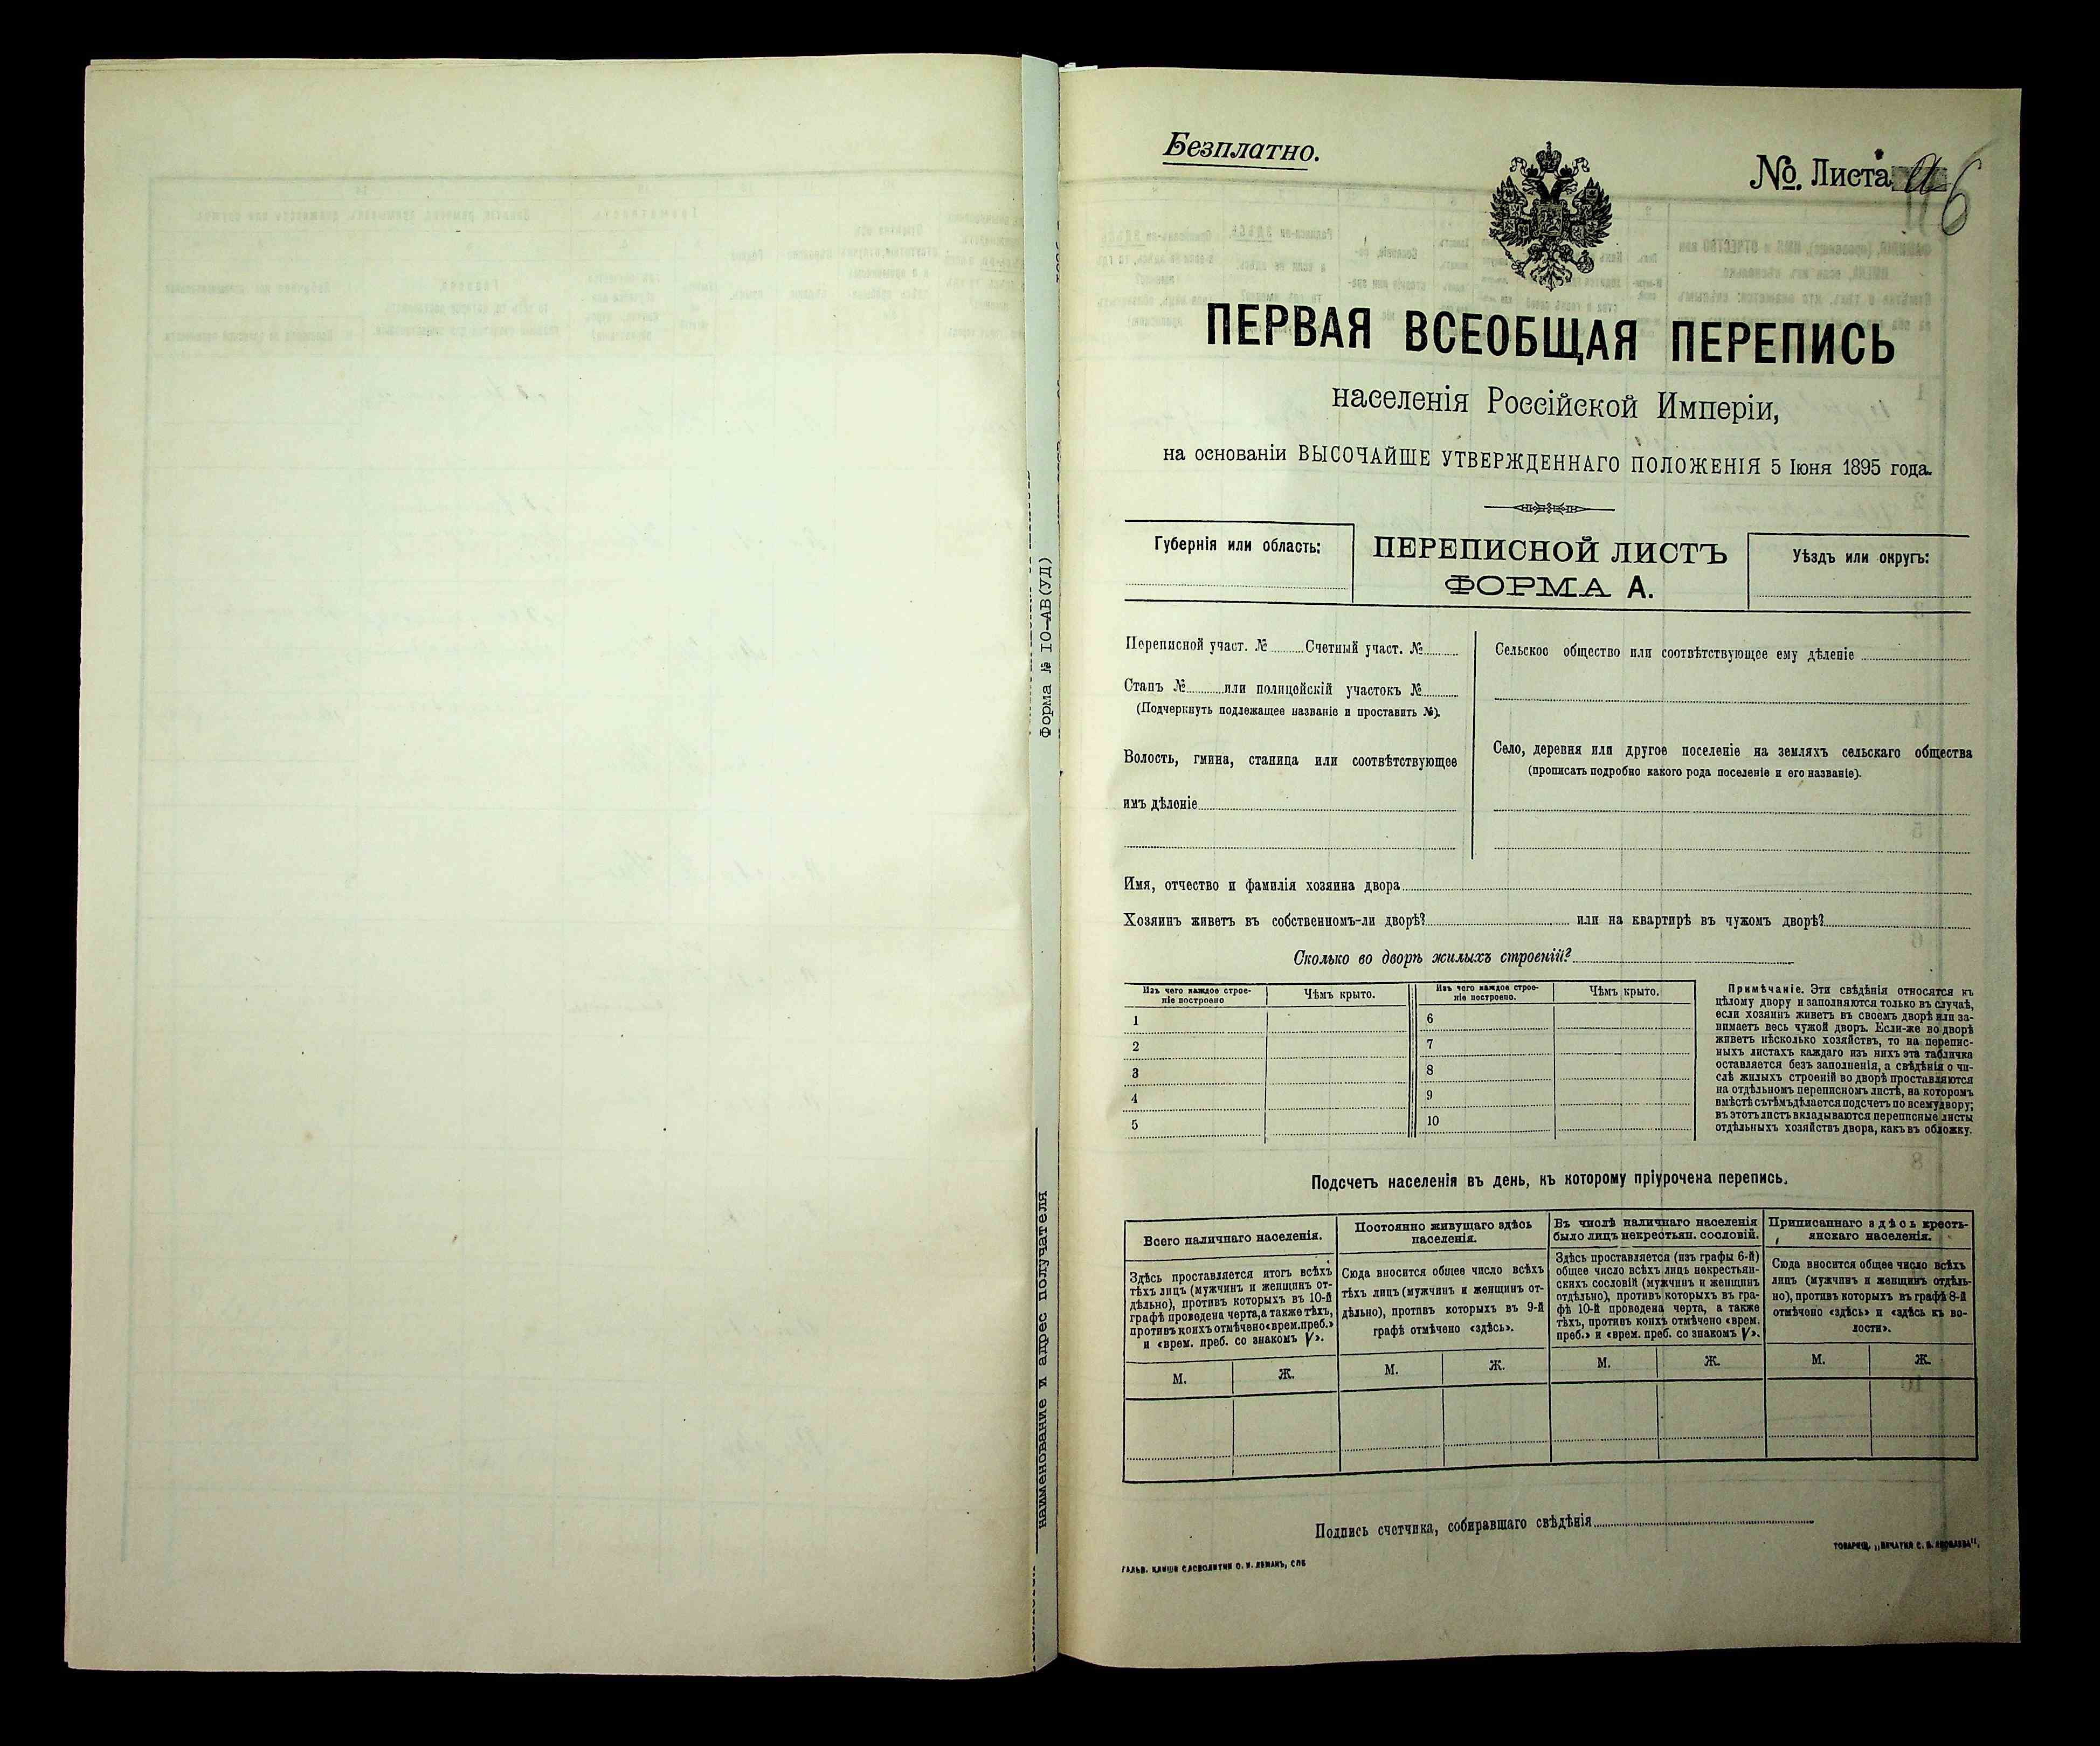 Форма № 10-АВ(УД)
наименование и адрес получателя
Безплатно.
№. Листа 6
ПЕРВАЯ ВСЕОБЩАЯ ПЕРЕПИСЬ
населенія Россійской Имперіи,
на основаніи ВЫСОЧАЙШЕ УТВЕРЖДЕННАГО ПОЛОЖЕНІЯ 5 Іюня 1895 года.
Губернія или область:
ПЕРЕПИСНОЙ ЛИСТЪ
ФОРМА А.
Уѣздъ или округъ:
Переписной участ. № Счетный участ. №
Станъ № или полицейскій участокъ №
(Подчеркнуть подлежащее названіе и проставить №).
Волость, гмина, станица или соотвѣтствующее
имъ дѣленіе
Сельское общество или соотвѣтствующее ему дѣленіе
Село, деревня или другое поселеніе на земляхъ сельскаго общества
(прописать подробно какого рода поселеніе и его названіе).
Имя, отчество и фамилія хозяина двора
Хозяинъ живетъ въ собственномъ-ли дворѣ? или на квартирѣ въ чужомъ дворѣ?
Сколько во дворѣ жилыхъ строеній?
Изъ чего каждое строе-
ніе построено
Чѣмъ крыто.
Изъ чего каждое строе-
ніе построено.
Чѣмъ крыто.
1
2
3
4
5
6
7
8
9
10
Примѣчаніе. Эти свѣдѣнія относятся къ
цѣлому двору и заполняются только въ случаѣ,
если хозяинъ живетъ въ своемъ дворѣ или за-
нимаетъ весь чужой дворъ. Если-же во дворѣ
живетъ нѣсколько хозяйствъ, то на перепис-
ныхъ листахъ каждаго изъ нихъ эта табличка
оставляется безъ заполненія, а свѣдѣнія о чи-
слѣ жилыхъ строеній во дворѣ проставляются
на отдѣльномъ переписномъ листѣ, на которомъ
вмѣстѣ съ тѣмъ дѣлается подсчетъ по всему двору;
въ этотъ листъ вкладываются переписные листы
отдѣльныхъ хозяйствъ двора, какъ въ обложку.
Подсчетъ населенія въ день, къ которому пріурочена перепись.
Всего наличнаго населенія.
Постоянно живущаго здѣсь
населенія.
Въ числѣ наличнаго населенія
было лицъ некрестьян. сословій.
Приписаннаго здѣсь кресть-
янскаго населенія.
Здѣсь проставляется итогъ всѣхъ
тѣхъ лицъ (мужчинъ и женщинъ от-
дѣльно), противъ которыхъ въ 10-й
графѣ проведена черта, а также тѣхъ,
противъ коихъ отмѣчено «врем. преб.»
и «врем. преб. со знакомъ V».
Сюда вносится общее число всѣхъ
тѣхъ лицъ (мужчинъ и женщинъ от-
дѣльно), противъ которыхъ въ 9-й
графѣ отмѣчено «здѣсь».
Здѣсь проставляется (изъ графы 6-й)
общее число всѣхъ лицъ некрестьян-
скихъ сословій (мужчинъ и женщинъ
отдѣльно), противъ которыхъ въ гра-
фѣ 10-й проведена черта, а также
тѣхъ, противъ коихъ отмѣчено «врем.
преб.» и «врем. преб. со знакомъ V».
Сюда вносится общее число всѣхъ
лицъ (мужчинъ и женщинъ отдѣль-
но), противъ которыхъ въ графѣ 8-й
отмѣчено «здѣсь» и «здѣсь въ во-
лости».
М. Ж. М. Ж. М. Ж. М. Ж.
Подпись счетчика, собиравшаго свѣдѣнія
ГАЛЬВ. КЛИШЕ СЛОВОЛИТНИ О. И. ЛЕМАНЪ, СПБ
ТОВАРИЩ. „ПЕЧАТНЯ С. П. ЯКОВЛЕВА".